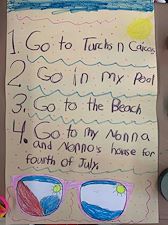 1. Go to Turcks n Caicos
2. Go in my Pool
3. Go to the Beach
4. Go to my Nonna
and Nonno's house for
fourth of July.